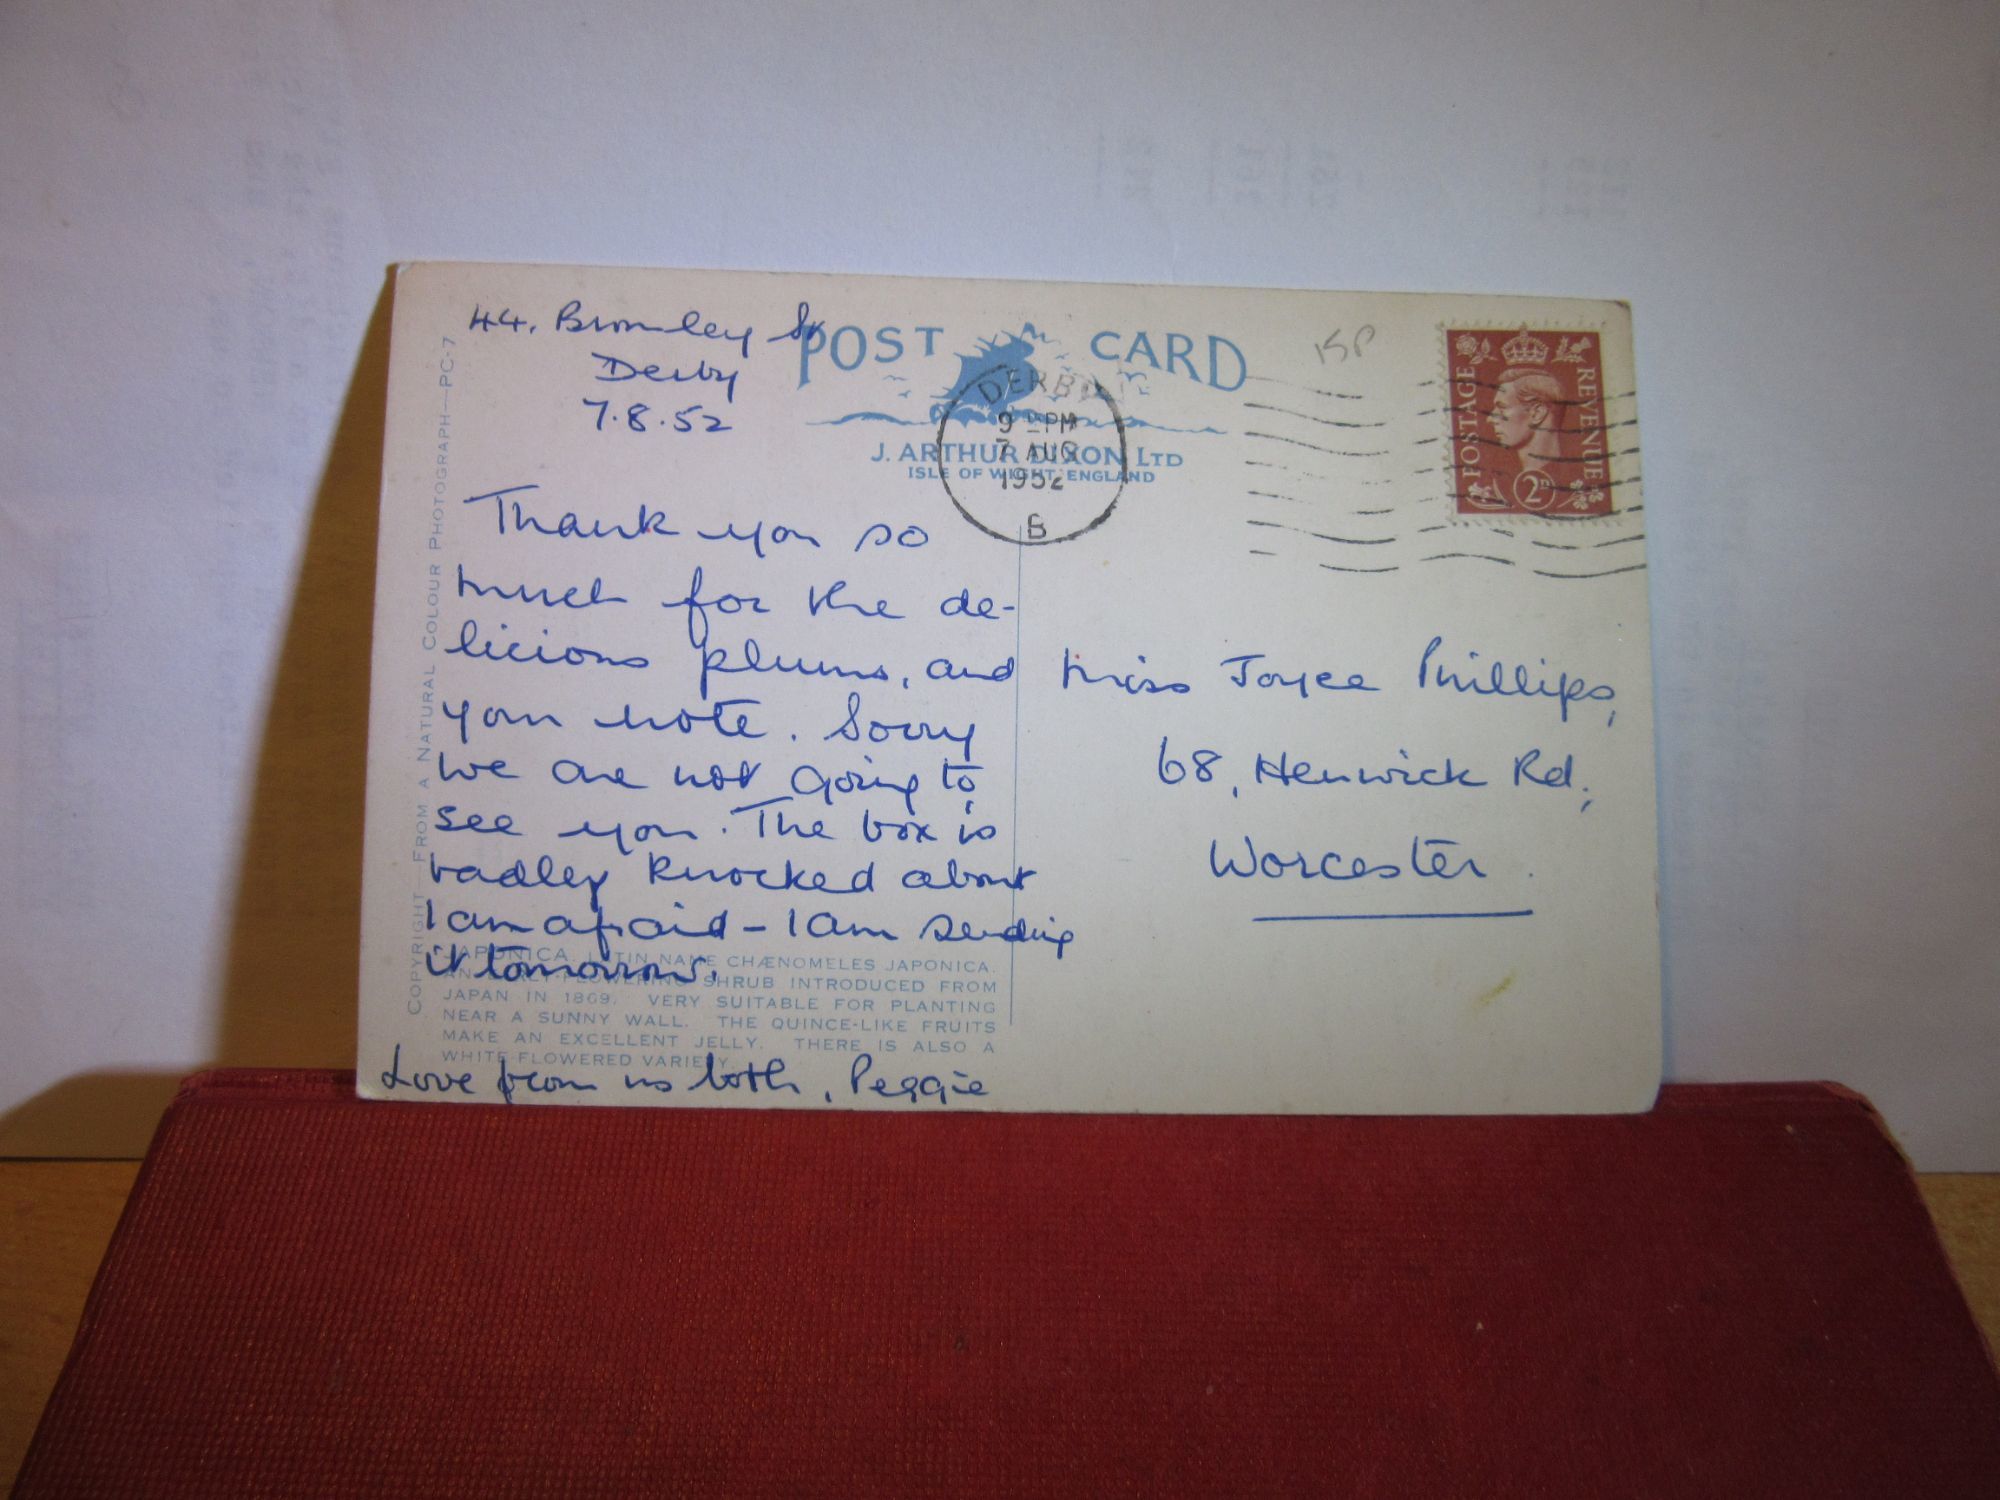 44, Bromley St
Derby
7.8.52
POST CARD
J. ARTHUR DIXON LTD
ISLE OF WIGHT, ENGLAND
DERBY
9 PM
7 AUG
1952
B
POSTAGE REVENUE
2D
15P
Thank you so
much for the de-
licious plums, and
your note. Sorry
we are not going to
see you. The box is
badley knocked about
I am afraid – I am sending
it tomorrow.
Love from us both, Peggie
Miss Joyce Phillips,
68, Henwick Rd,
Worcester.
COPYRIGHT—FROM A NATURAL COLOUR PHOTOGRAPH—PC-7
JAPONICA. LATIN NAME CHÆNOMELES JAPONICA.
AN EARLY-FLOWERING SHRUB INTRODUCED FROM
JAPAN IN 1869. VERY SUITABLE FOR PLANTING
NEAR A SUNNY WALL. THE QUINCE-LIKE FRUITS
MAKE AN EXCELLENT JELLY. THERE IS ALSO A
WHITE-FLOWERED VARIETY.